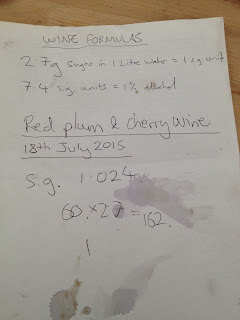 WINE FORMULAS
2.7g sugar in 1 Litre water = 1 s.g. unit
7.4 s.g. units = 1% alcohol
Red plum & cherry wine
18th July 2015
s.g. 1.024
60. × 27 = 162.
1